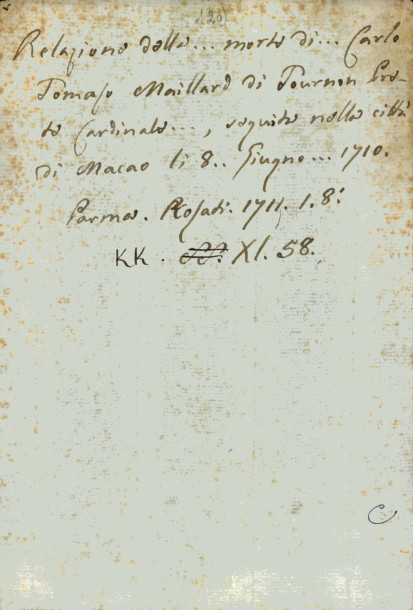 120
Relazione della... morte di... Carlo
Tomaso Maillard di Tournon Pre-
te Cardinale..., seguita nella città
di Macao li 8.. Giugno... 1710.
Parma. Rosati. 1711. 1. 8:
KK. XI. 58.
C